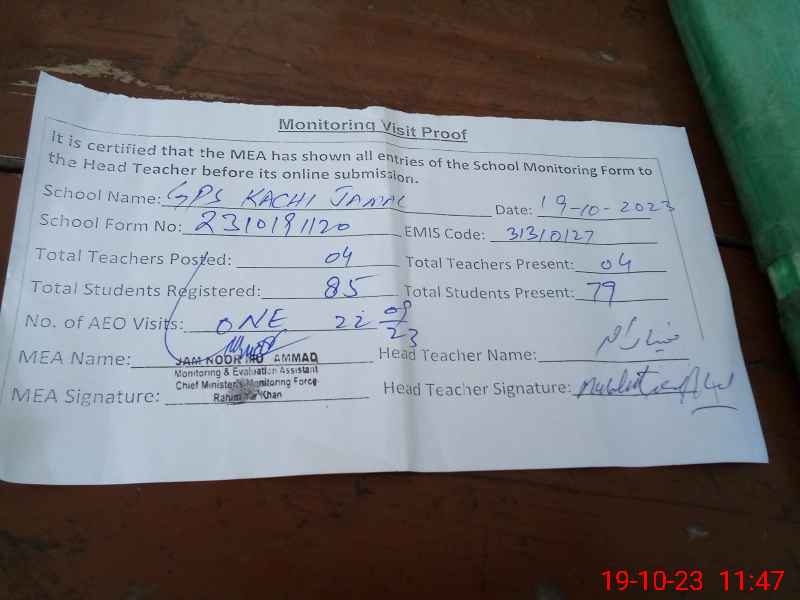 Monitoring Visit Proof
It is certified that the MEA has shown all entries of the School Monitoring Form to
the Head Teacher before its online submission.
School Name: GPS KACHI JAMAL Date: 19-10-2023
School Form No: 2310191120 EMIS Code: 31310127
Total Teachers Posted: 04 Total Teachers Present: 04
Total Students Registered: 85 Total Students Present: 79
No. of AEO Visits: ONE 22 09/23
MEA Name: JAM NOOR MUHAMMAD Head Teacher Name:
Monitoring & Evaluation Assistant
Chief Minister's Monitoring Force
MEA Signature: Rahim Yar Khan Head Teacher Signature:
19-10-23 11:47